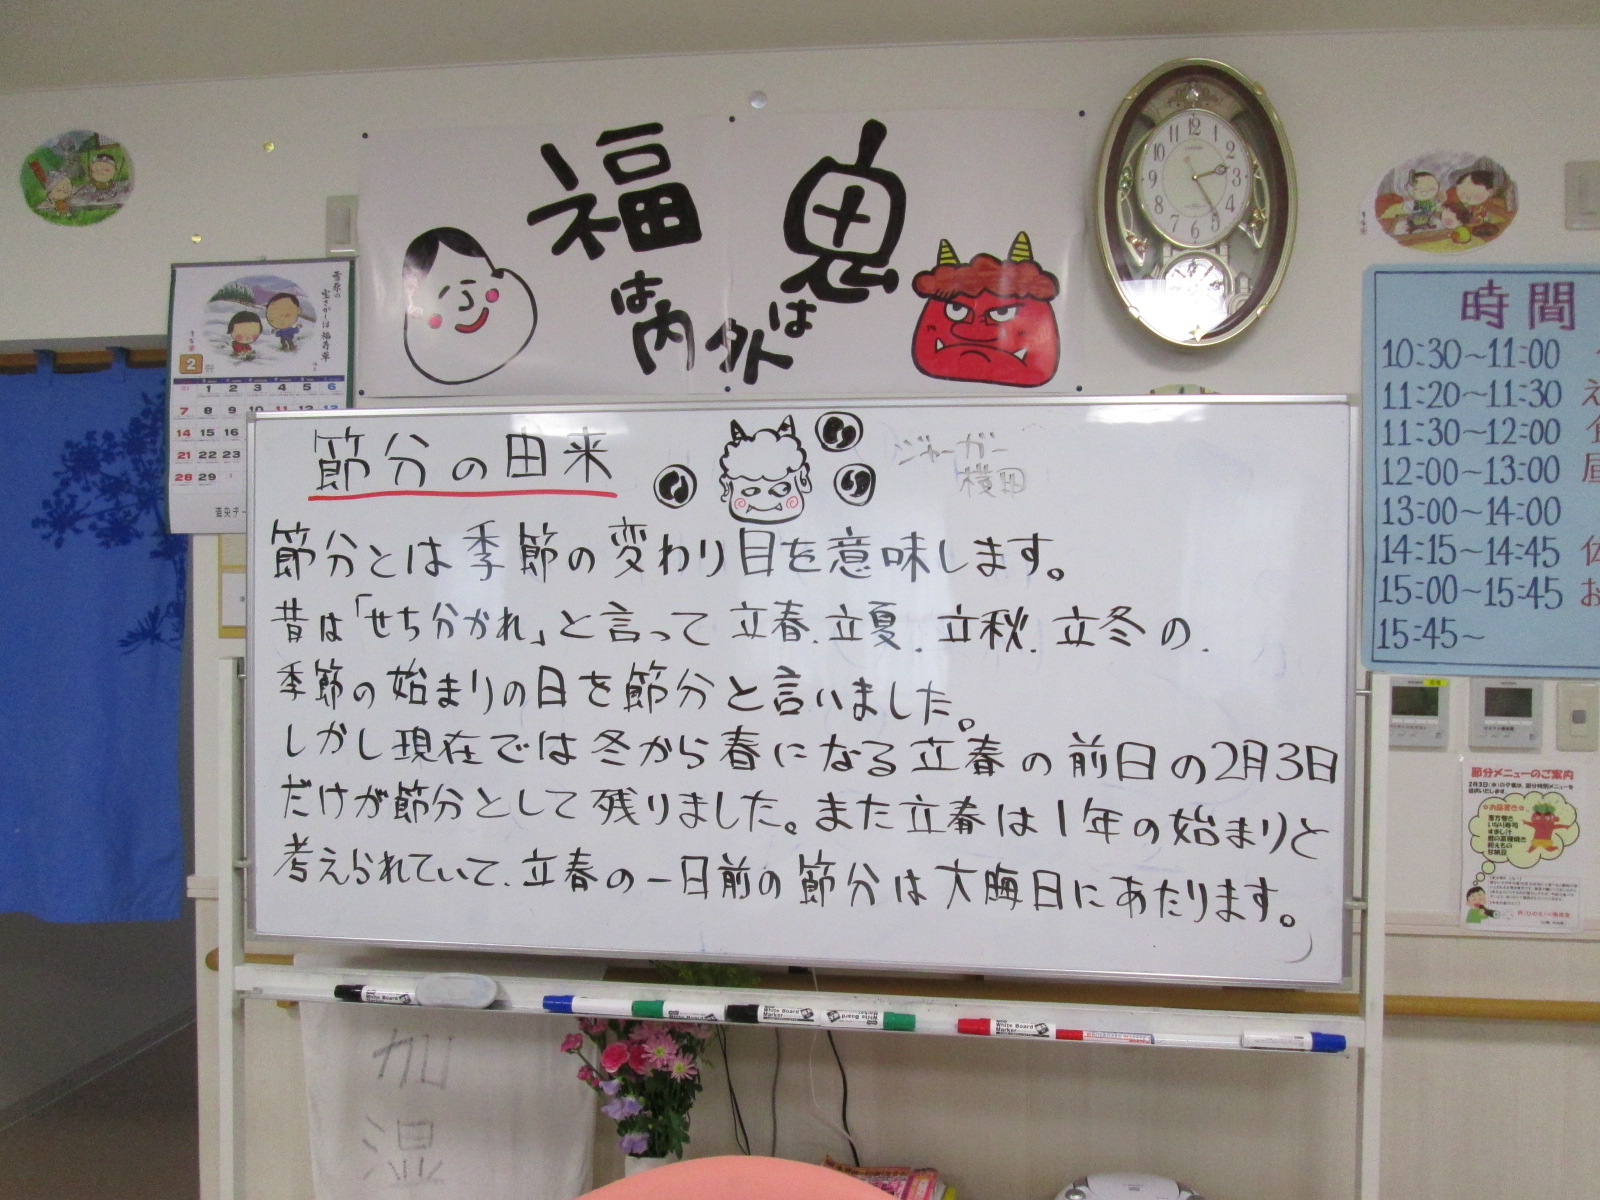 福は内
鬼は外
2
1 2 3 4 5 6
7 8 9 10 11 12 13
14 15 16
21 22 23
28 29
節分の由来
ジャーガー
横田
節分とは季節の変わり目を意味します。
昔は「せち分かれ」と言って立春.立夏.立秋.立冬の.
季節の始まりの日を節分と言いました。
しかし現在では冬から春になる立春の前日の2月3日
だけが節分として残りました。また立春は1年の始まりと
考えられていて.立春の一日前の節分は大晦日にあたります。
時間
10:30〜11:00
11:20〜11:30
11:30〜12:00
12:00〜13:00 昼
13:00〜14:00
14:15〜14:45
15:00〜15:45 お
15:45〜
節分メニューのご案内
White Board Marker
White Board Marker
White Board Marker
加湿